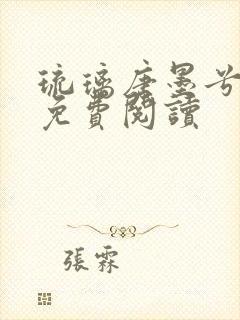 琉璃唐墨兮
免費閱讀
張霖